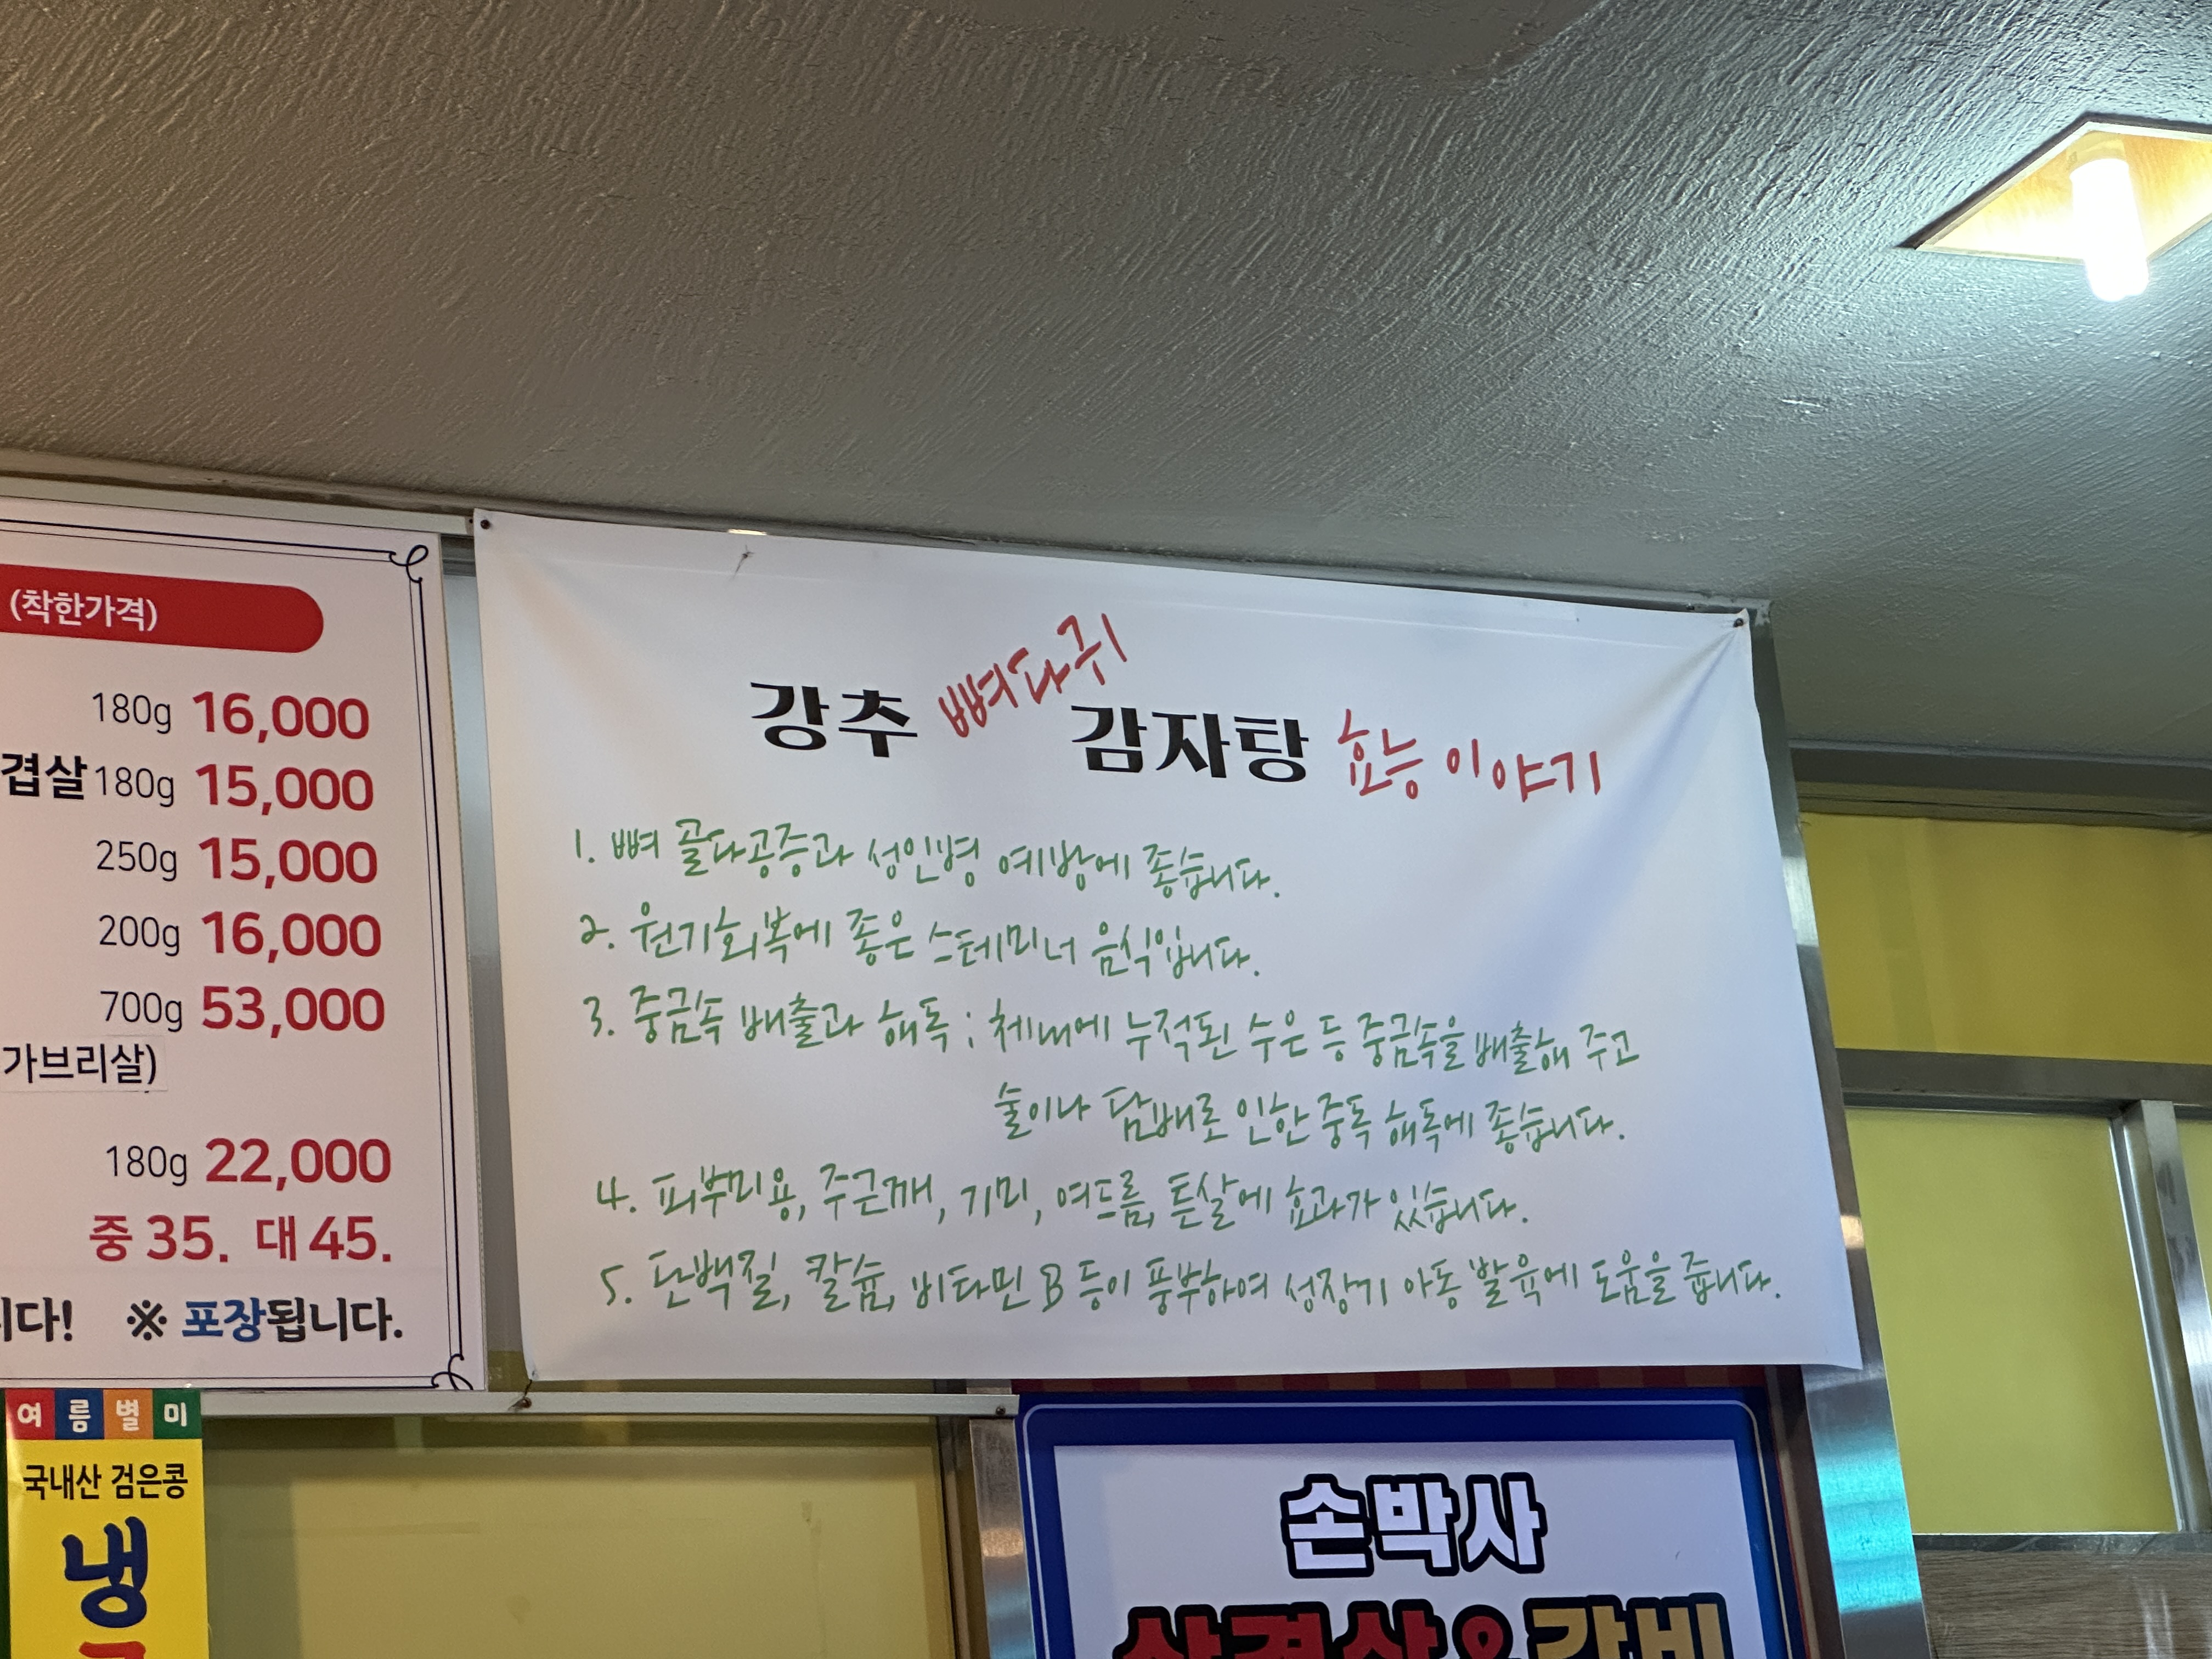 (착한가격)
180g 16,000
겹살 180g 15,000
250g 15,000
200g 16,000
700g 53,000
가브리살)
180g 22,000
중 35. 대 45.
니다! ※ 포장됩니다.
여름별미
국내산 검은콩
냉
강추 뼈다귀 감자탕 효능 이야기
1. 뼈 골다공증과 성인병 예방에 좋습니다.
2. 원기회복에 좋은 스테미너 음식입니다.
3. 중금속 배출과 해독 : 체내에 누적된 수은 등 중금속을 배출해 주고
술이나 담배로 인한 중독 해독에 좋습니다.
4. 피부미용, 주근깨, 기미, 여드름, 튼살에 효과가 있습니다.
5. 단백질, 칼슘, 비타민 B 등이 풍부하여 성장기 아동 발육에 도움을 줍니다.
손박사
삼겹살&갈비